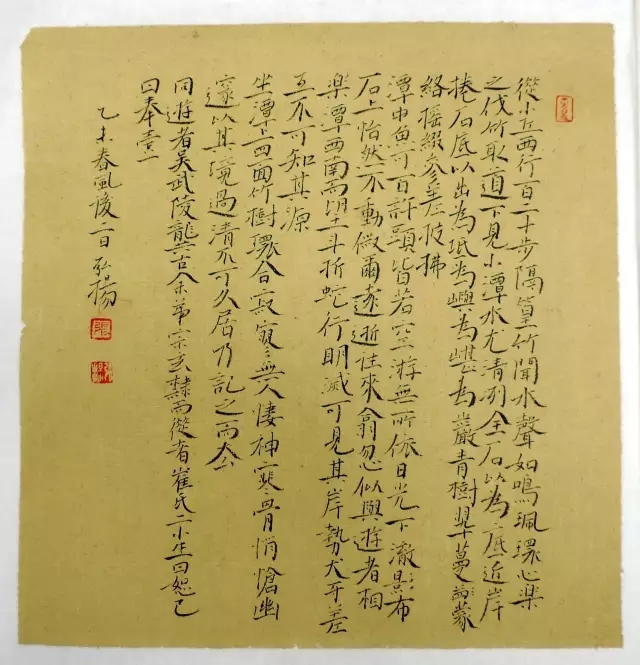 從小丘西行百二十步隔篁竹聞水聲如鳴珮環心樂
之伐竹取道下見小潭水尤清冽全石以為底近岸
捲石底以出為坻為嶼為嵁為巖青樹翠蔓蒙
絡搖綴參差披拂
潭中魚可百許頭皆若空游無所依日光下澈影布
石上怡然不動俶爾遠逝往來翕忽似與遊者相
樂潭西南而望斗折蛇行明滅可見其岸勢犬牙差
互不可知其源
坐潭上四面竹樹環合寂寥無人悽神寒骨悄愴幽
邃以其境過清不可久居乃記之而去
同遊者吳武陵龔古余弟宗玄隸而從者崔氏二小生曰恕己
曰奉壹
乙未春風後二日弘揚